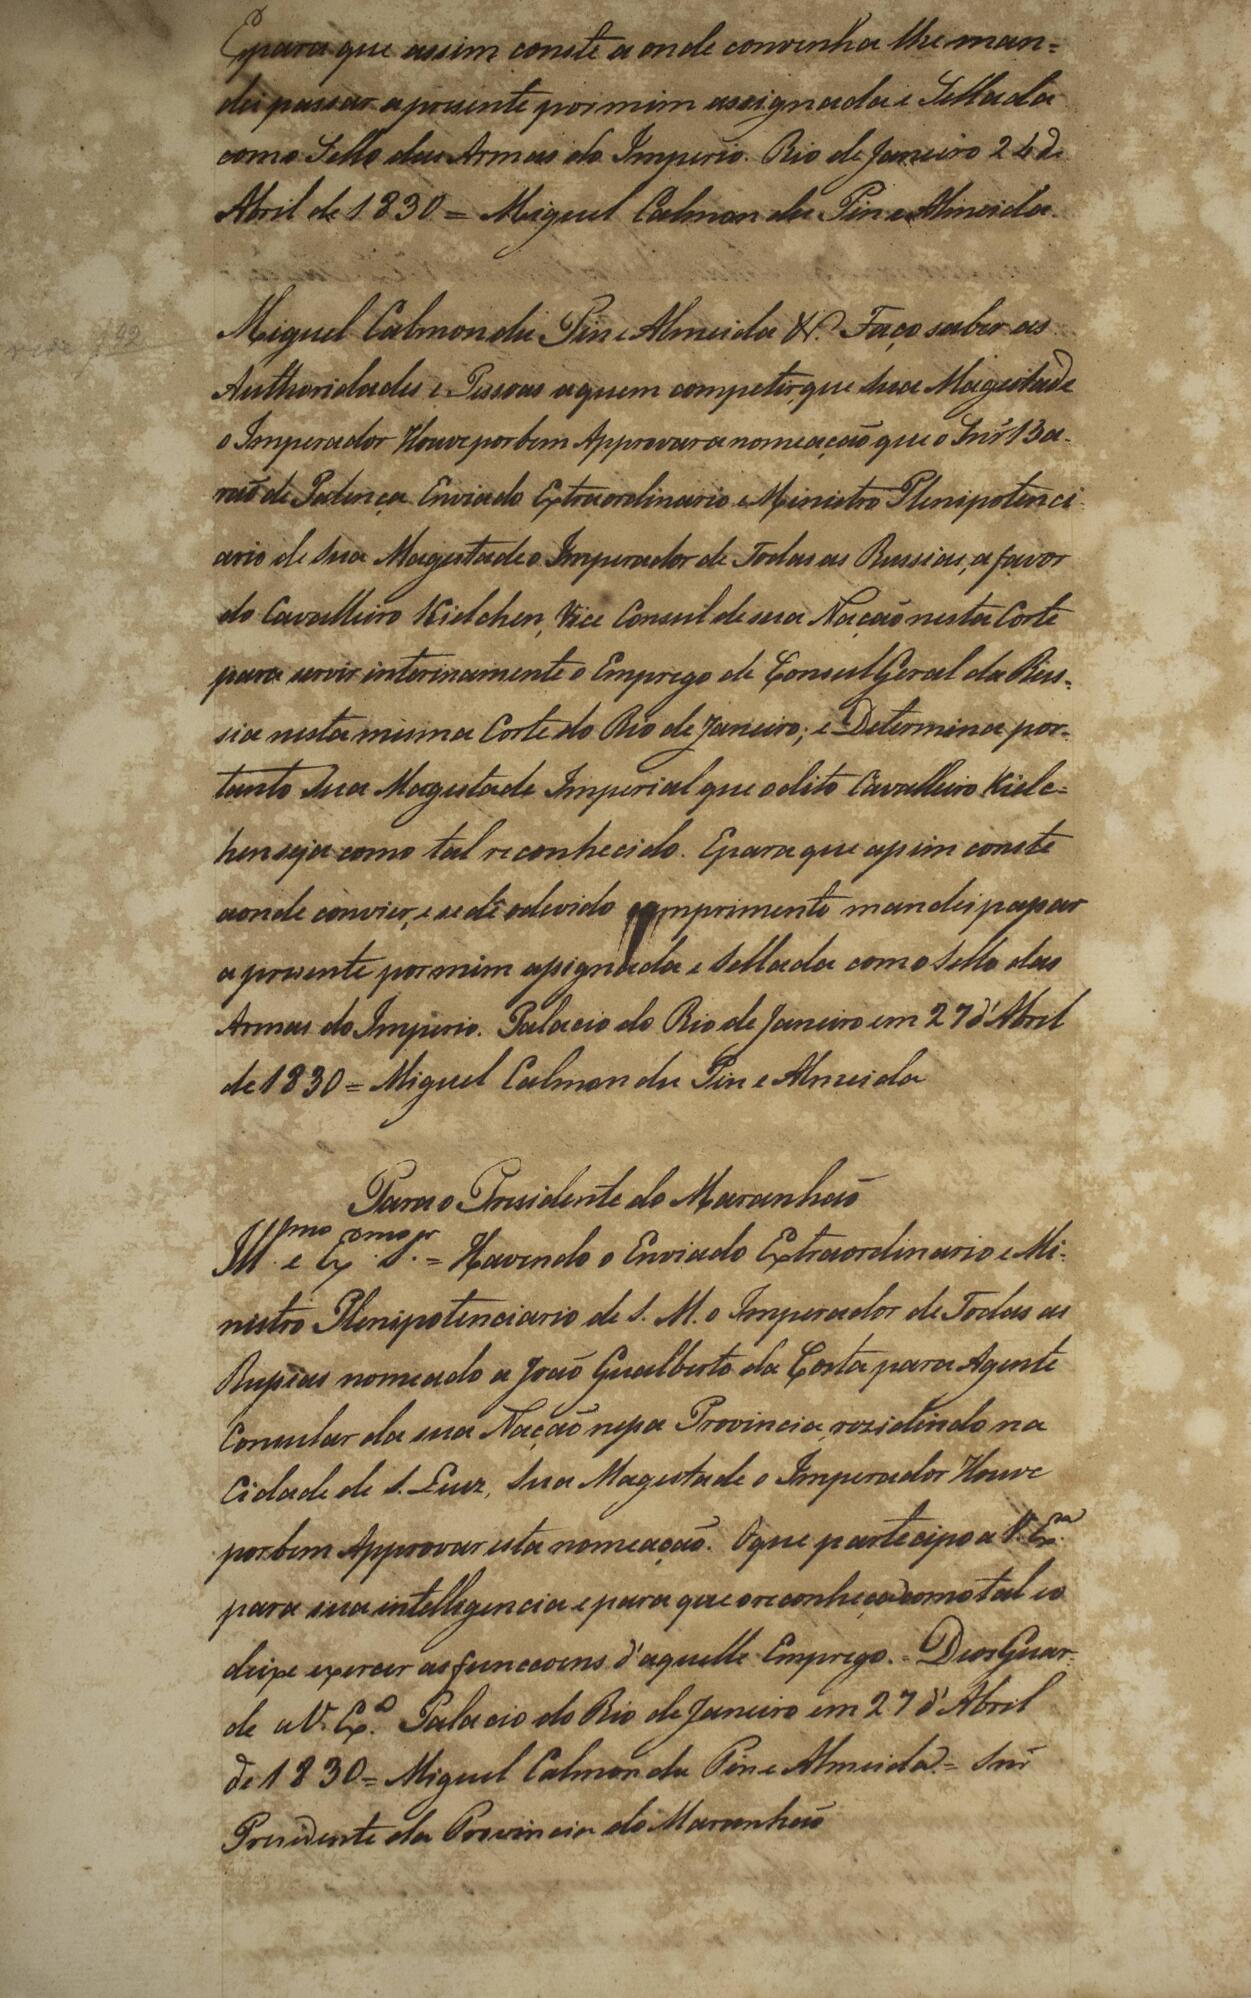 E para que assim conste a onde convenha lhe man=
dei passar a presente por mim assignada e Sellada
com o Sello das Armas do Imperio. Rio de Janeiro 24 de
Abril de 1830 = Miguel Calmon du Pin e Almeida.
Miguel Calmon du Pin e Almeida &. Faço saber as
Authoridades e Pessoas a quem competir, que Sua Magestade
o Imperador Houve por bem Approvar a nomeação que o Snr̃ Ba-
rão de Palença Enviado Extraordinario e Ministro Plenipotenci-
ario de Sua Magestade o Imperador de Todas as Russias, a favor
do Cavalleiro Kielchen, Vice Consul de sua Nação nesta Corte
para servir interinamente o Emprego de Consul Geral da Rus-
sia nesta mesma Corte do Rio de Janeiro; e Determina por-
tanto Sua Magestade Imperial que o dito Cavalleiro Kielc=
hen seja como tal reconhecido. E para que assim conste
aonde convier, e se dê o devido comprimento mandei passar
a presente por mim assignada e Sellada com o Sello das
Armas do Imperio. Palacio do Rio de Janeiro em 27 d'Abril
de 1830 = Miguel Calmon du Pin e Almeida
Para o Presidente do Maranhão
Ill.mo e Ex.mo S.r = Havendo o Enviado Extraordinario e Mi-
nistro Plenipotenciario de S. M. o Imperador de Todas as
Russias nomeado a João Gualberto da Costa para Agente
Consular da sua Nação nessa Provincia, rezidindo na
Cidade de S. Luiz, Sua Magestade o Imperador Houve
por bem Approvar esta nomeação. O que partecipo a V. Ex.a
para sua intelligencia e para que o reconheça como tal e o
deixe exercer as funccoens d'aquelle Emprego. - Deos Guar-
de a V. Ex.a Palacio do Rio de Janeiro em 27 d'Abril
de 1830 = Miguel Calmon du Pin e Almeida = Snr̃
Presidente da Provincia do Maranhão